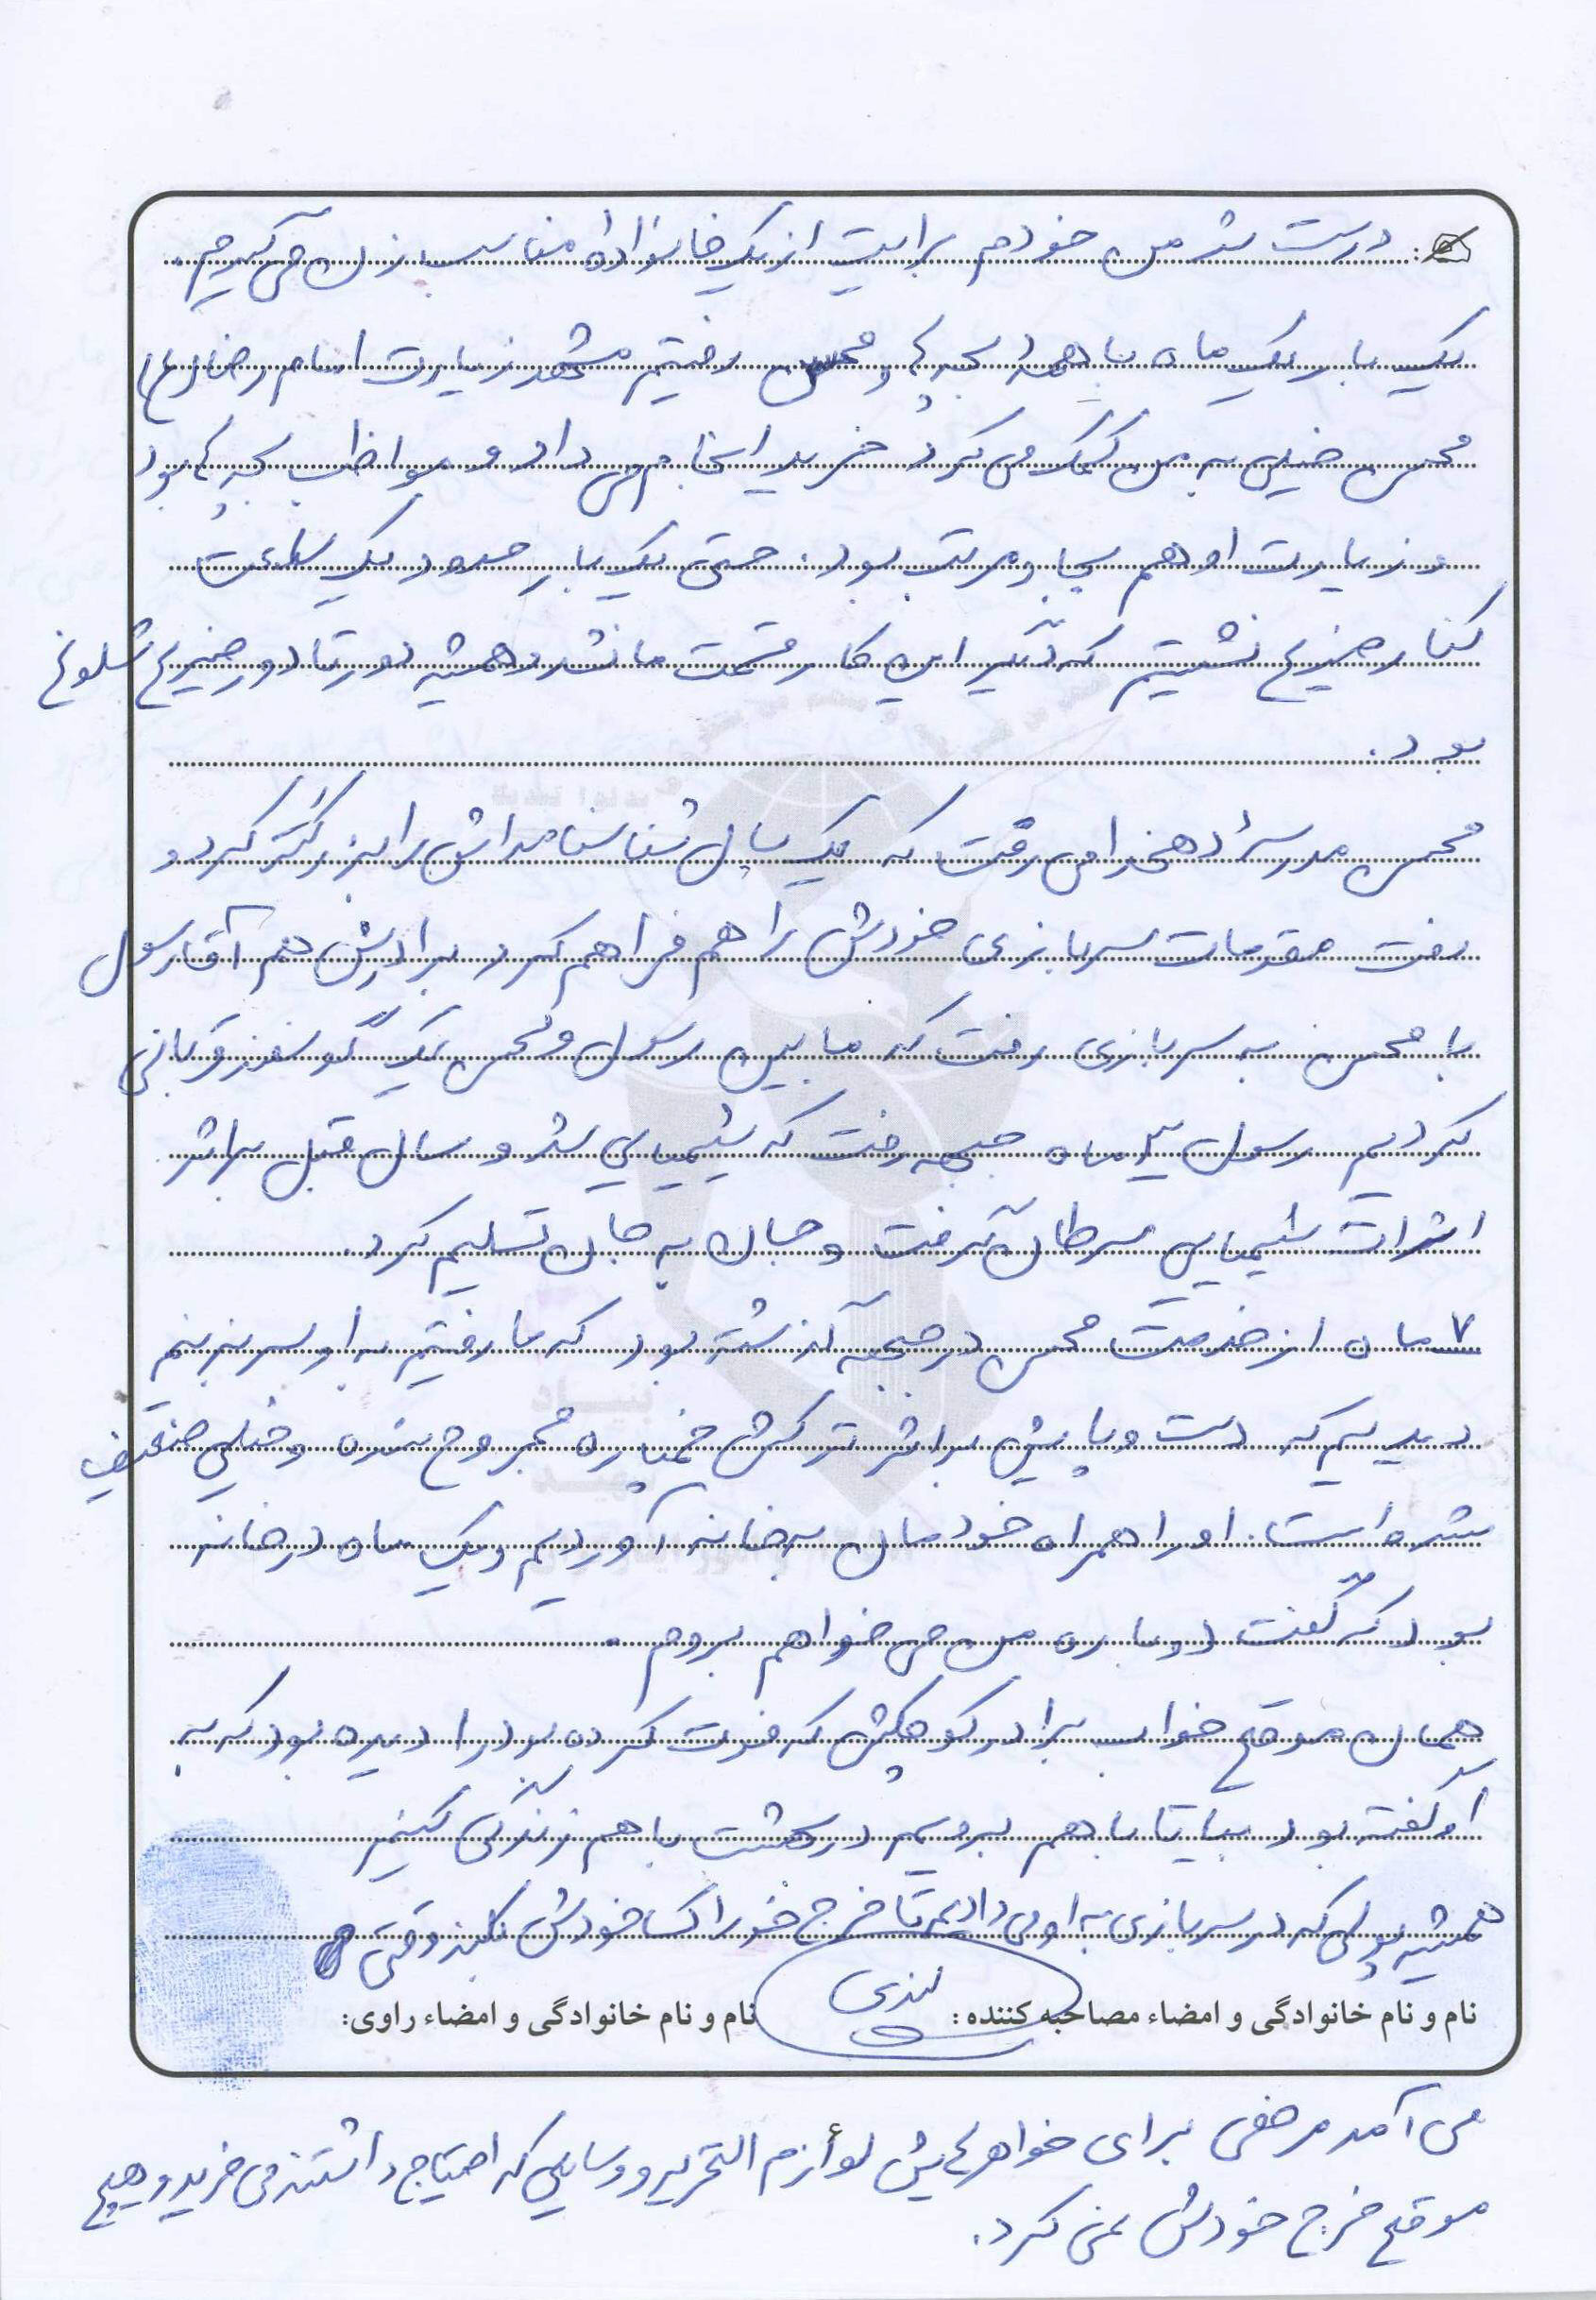 درست شد من خودم برایت از یک خانواده مناسب زن می گیرم.
یک بار یک ماه با همه بچه ها و محسن رفتیم مشهد زیارت امام رضا (ع)
محسن خیلی به من کمک می کرد خرید انجام می داد و مواظب بچه ها بود
و زیارت او هم بجا و مرتب بود. حتی یک بار حدود یک ساعت
کنار ضریح نشستیم که دیگر این کار قسمت ما نشد و همیشه دور تا دور ضریح شلوغ
بود.
محسن مدرسهٔ دهخدا می رفت که یک سال شناسنامه اش را بزرگتر کرد و
رفت مقدمات سربازی خودش را هم فراهم کرد برادرش هم آقا رسول
با محسن به سربازی رفت که ما بین رسول و محسن یک گوسفند قربانی
کردیم رسول ۳ ماه جبهه رفت که شیمیایی شد و سال قبل براثر
اثرات شیمیایی سرطان گرفت و جان به جان تسلیم کرد.
۷ ماه از خدمت محسن در جبهه گذشته بود که ما رفتیم به او سر بزنیم
دیدیم که دست و پایش براثر ترکش خمپاره مجروح شده و خیلی ضعیف
شده است. او را همراه خودمان به خانه آوردیم و یک ماه در خانه
بود که گفت دوباره من می خواهم بروم.
همان موقع خواب برادر کوچکش که فوت کرده بود را دیده بود که به
او گفته بود بیا تا با هم برویم در بهشت با هم زندگی کنیم
همیشه پولی که در سربازی به او می دادیم تا خرج خوراک خودش بکند وقتی
نام و نام خانوادگی و امضاء مصاحبه کننده:
نام و نام خانوادگی و امضاء راوی:
می آمد مرخصی برای خواهرهایش لوازم التحریر و وسایلی که احتیاج داشتند می خرید و هیچ
موقع خرج خودش نمی کرد.